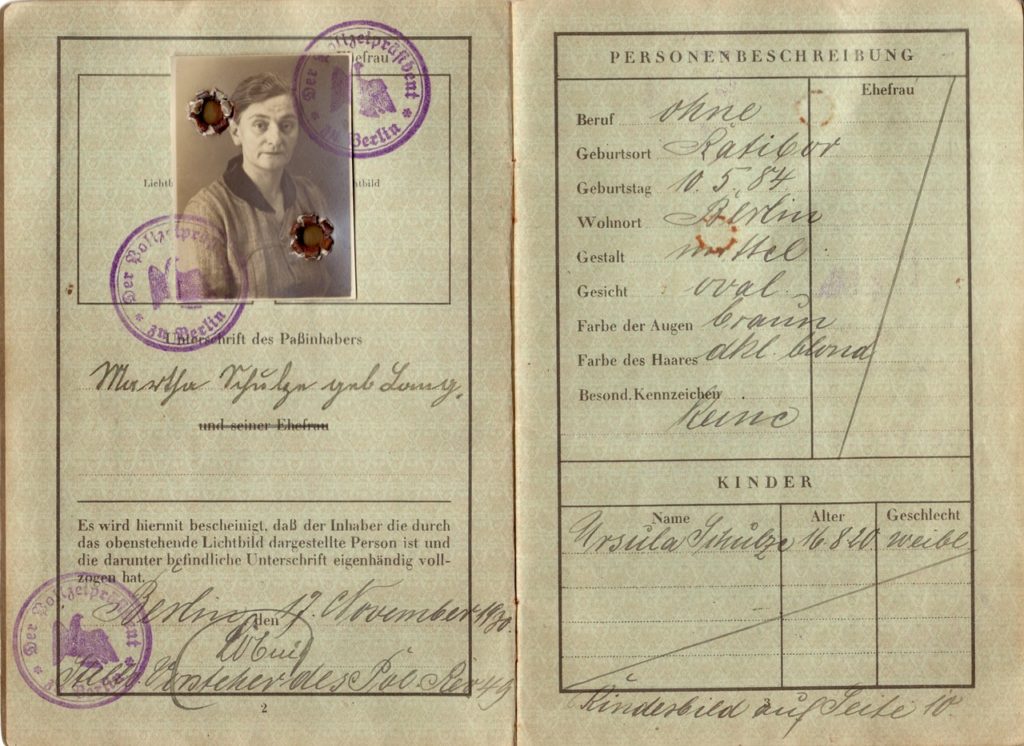 Ehefrau
Der Polizeipräsident
zu Berlin
Lichtb
htbild
Der Polizeipräsident
zu Berlin
Unterschrift des Paßinhabers
Martha Schulze geb Lang.
und seiner Ehefrau
Es wird hiermit bescheinigt, daß der Inhaber die durch
das obenstehende Lichtbild dargestellte Person ist und
die darunter befindliche Unterschrift eigenhändig voll-
zogen hat.
Der Polizeipräsident
zu Berlin
Berlin, den 17. November 1930.
Stellv. Vorsteher des Pol. Rev 49
2
PERSONENBESCHREIBUNG
Ehefrau
Beruf ohne
Geburtsort Ratibor
Geburtstag 10.5.84
Wohnort Berlin
Gestalt mittel
Gesicht oval
Farbe der Augen braun
Farbe des Haares dkl. blond
Besond. Kennzeichen
Keine
KINDER
Name Alter Geschlecht
Ursula Schulze 16 8 20 weibl
Kindesbild auf Seite 10.